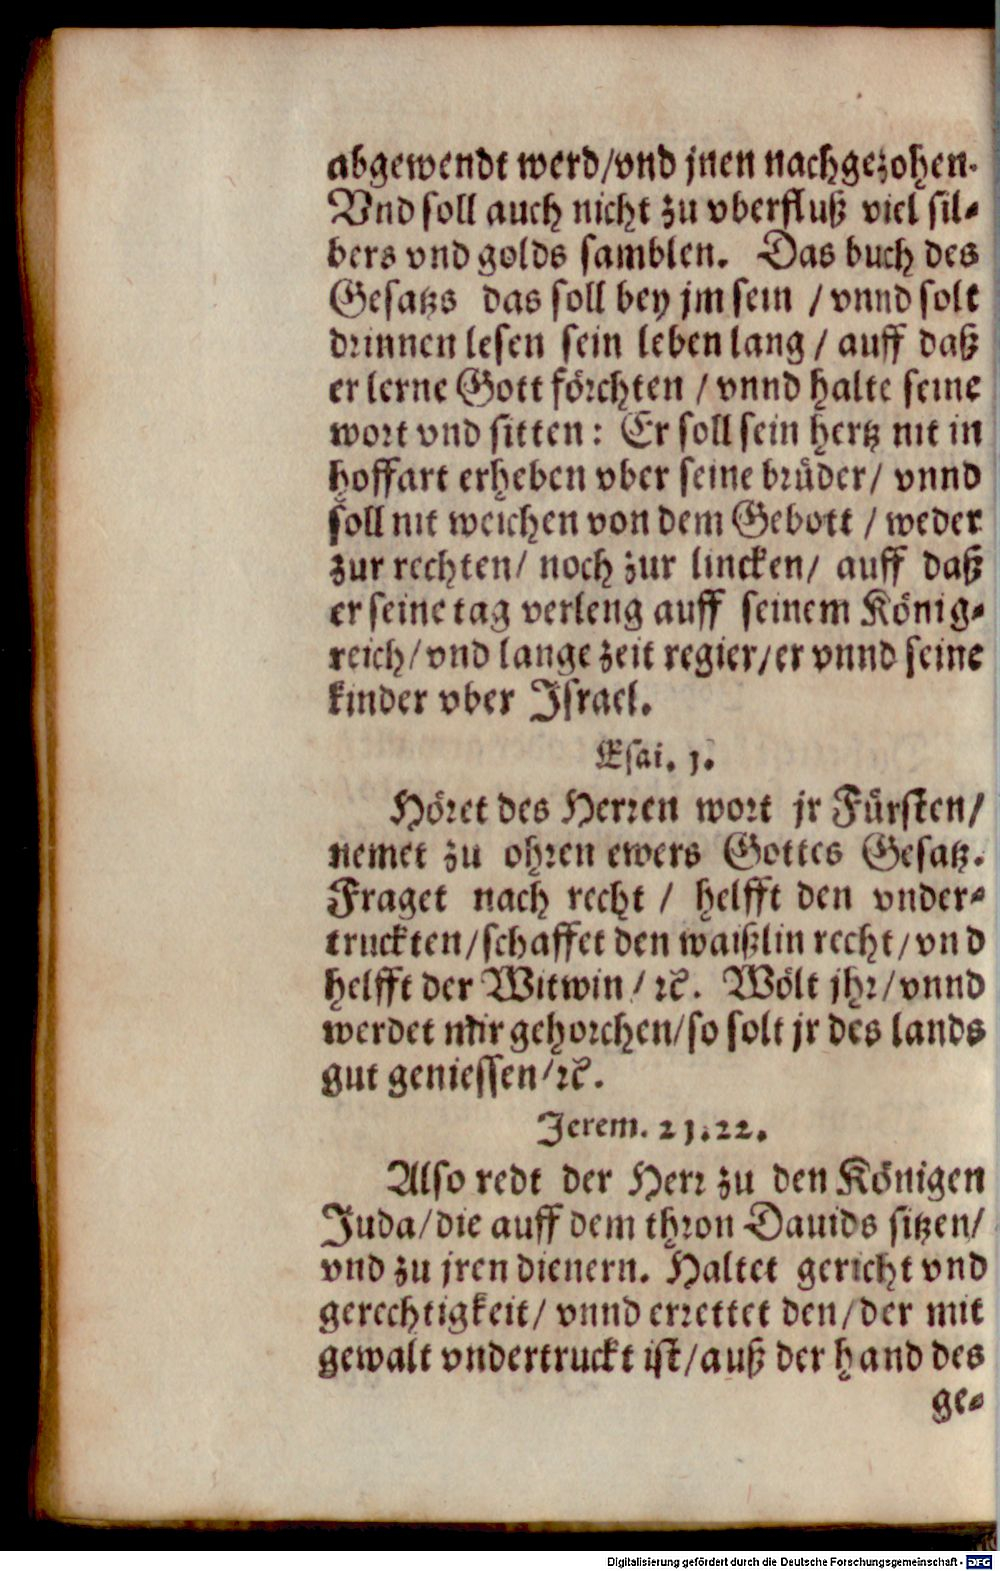 abgewendt werd/vnd jnen nachgezohen.
Vnd soll auch nicht zu vberfluß viel sil-
bers vnd golds samblen. Das buch des
Gesatzs das soll bey jm sein / vnnd solt
drinnen lesen sein leben lang / auff daß
er lerne Gott förchten / vnnd halte seine
wort vnd sitten: Er soll sein hertz nit in
hoffart erheben vber seine brüder/ vnnd
soll nit weichen von dem Gebott / weder
zur rechten/ noch zur lincken/ auff daß
er seine tag verleng auff seinem König-
reich/vnd lange zeit regier/er vnnd seine
kinder vber Israel.
Esai. 1.
Höret des Herren wort jr Fürsten/
nemet zu ohren ewers Gottes Gesatz.
Fraget nach recht / helfft den vnder-
truckten/schaffet den waißlin recht/vnd
helfft der Witwin/ ꝛc. Wölt jhr/vnnd
werdet mir gehorchen/so solt jr des lands
gut geniessen/ꝛc.
Jerem. 21.22.
Also redt der Herr zu den Königen
Juda/die auff dem thron Dauids sitzen/
vnd zu jren dienern. Haltet gericht vnd
gerechtigkeit/ vnnd errettet den/der mit
gewalt vndertruckt ist/auß der hand des
ge-
Digitalisierung gefördert durch die Deutsche Forschungsgemeinschaft - DFG